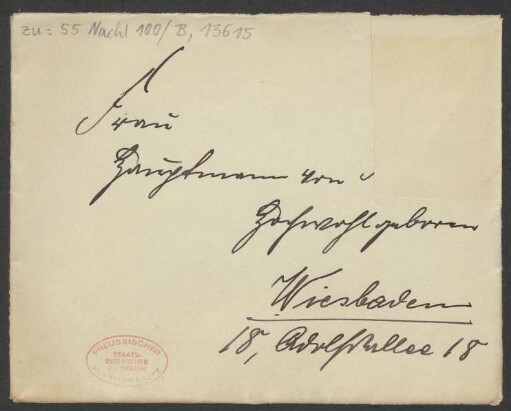 zu: 55 Nachl 100/B, 13615
Frau
Hauptmann von
Hochwohlgeboren
Wiesbaden
18, Adolfsallee 18
PREUSSISCHER
STAATS-
BIBLIOTHEK